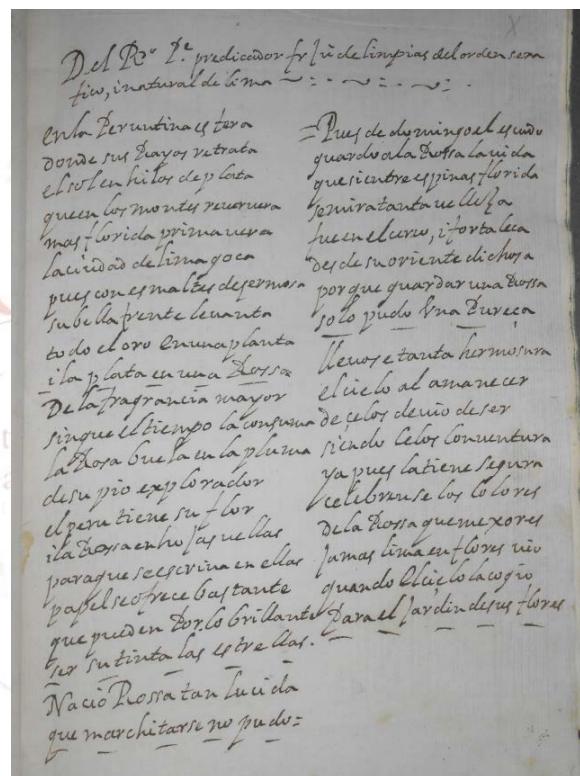 Del Ro. Pe. predicador fr Ju de limpias del orden sera
fico, i natural de lima
en la Peruntina esfera
donde sus Rayos retrata
el sol en hilos de plata
que en los montes reueruera
mas florida primauera
la ciudad de lima goca
pues con esmaltes de sermosa
su bella frente leuanta
todo el oro en una planta
i la plata en una Rossa
De la fragrancia mayor
sin que el tiempo la consuma
la Rosa buela en la pluma
de su pio explorador
el peru tiene su flor
i la Rossa en hojas uellas
para que se escriua en ellas
papel se ofrece bastante
que pueden Por lo brillante
ser su tinta las estrellas.
Nacio Rossa tan lucida
que marchitarse no pudo=
=Pues de domingo el escudo
guardo a la Rossa la uida
que si entre espinas florida
se mira tanta uelleza
fue en el cerco, i fortaleca
desde su oriente dichosa
porque guardar una Rossa
solo pudo Vna Dureça
lleuose tanta hermosura
el cielo al amanecer
de çelos deuio de ser
siendo Celos Conuentura
ya pues la tiene segura
celebrense los Colores
De la Rossa que mexores
Jamas lima en flores uio
quando El cielo la cogio
Para el Jardin de sus flores